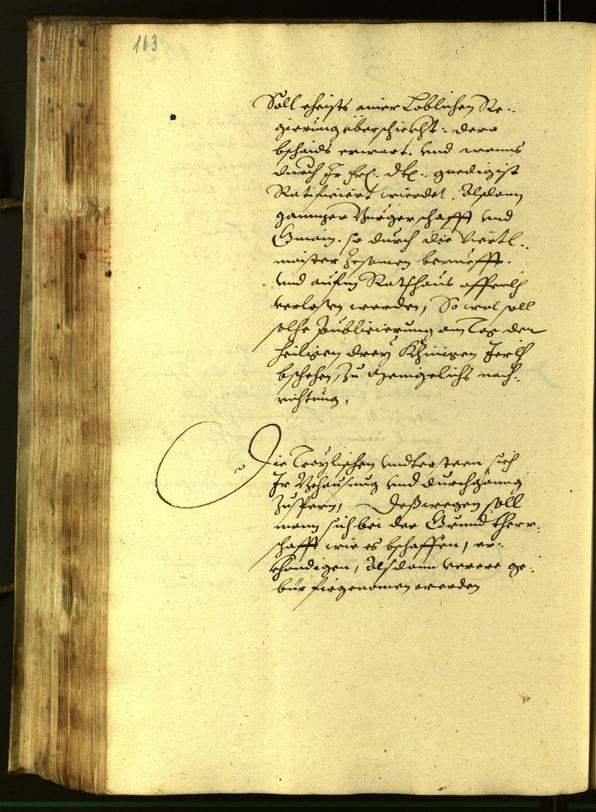 163
Soll ehists ainer Loblichen Re-.
gierung überschickht. dero
bschaids erwart. und wanns
durch Ir Frl: Dht: gnedigist
Ratificiert wierdet. Alsdann
gannzer Burgerschafft und
Gmain. so durch die Viertl-.
maister zusamen beruefft.
und aufm Rathhaus offentlich
verlesen werden, So wol soll
solhe Publicierung am Tag der
heiligen drey Khinigen Jerlich
bschehen, zu menigelichs nach-.
richtung,
Die underSteen sich
Ir Behausung und durchganng
Zuspern, Deßwegen soll
mann sich bei der Grundtherr-.
schafft wie es bschaffen, er-.
khundigen, Alsdann verere ge-.
bür firgenomen werden